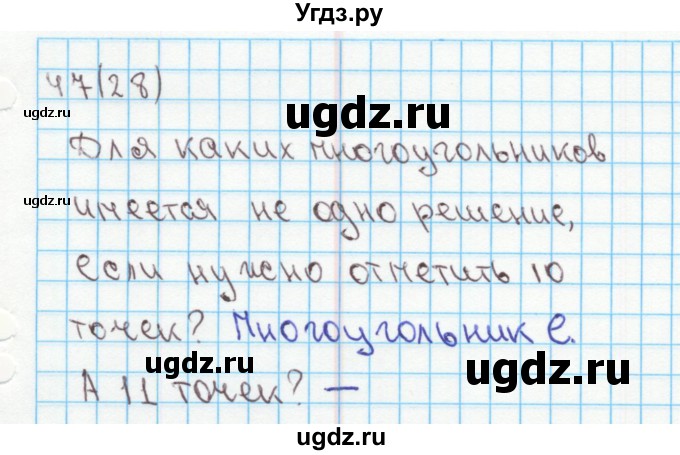 Угдз.ру
47(28)
Для каких многоугольников
имеется не одно решение,
если нужно отметить 10
точек? Многоугольник C.
А 11 точек? —
ugdz.ru
ugdz.ru
ugdz.ru
ugdz.ru
ugdz.ru
ugdz.ru
ugdz.ru